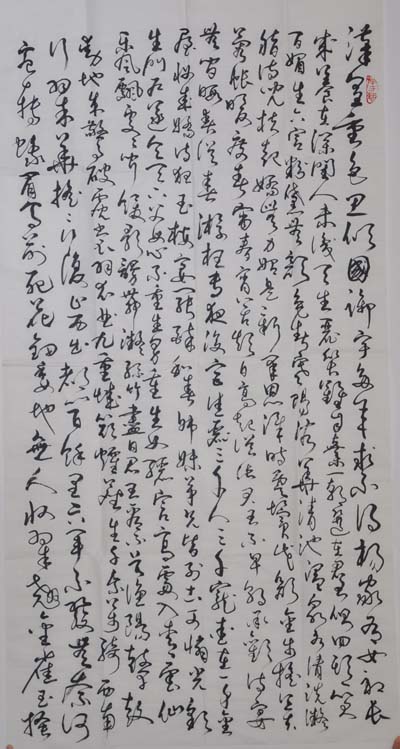 漢皇重色思傾國御宇多年求不得楊家有女初長
成養在深閨人未識天生麗質難自棄一朝選在君王側回頭一笑
百媚生六宮粉黛無顏色春寒賜浴華清池溫泉水滑洗凝
脂侍兒扶起嬌無力始是新承恩澤時雲鬢花顏金步搖芙
蓉帳暖度春宵春宵苦短日高起從此君王不早朝承歡侍宴
無閑暇春從春遊夜專夜後宮佳麗三千人三千寵愛在一身金
屋妝成嬌侍夜玉樓宴罷醉和春姊妹弟兄皆列土可憐光彩
生門戶遂令天下父母心不重生男重生女驪宮高處入青雲仙
樂風飄處處聞緩歌慢舞凝絲竹盡日君王看不足漁陽鼙鼓
動地來驚破霓裳羽衣曲九重城闕煙塵生千乘萬騎西南
行翠華搖搖行復止西出都門百餘里六軍不發無奈何
宛轉蛾眉馬前死花鈿委地無人收翠翹金雀玉搔